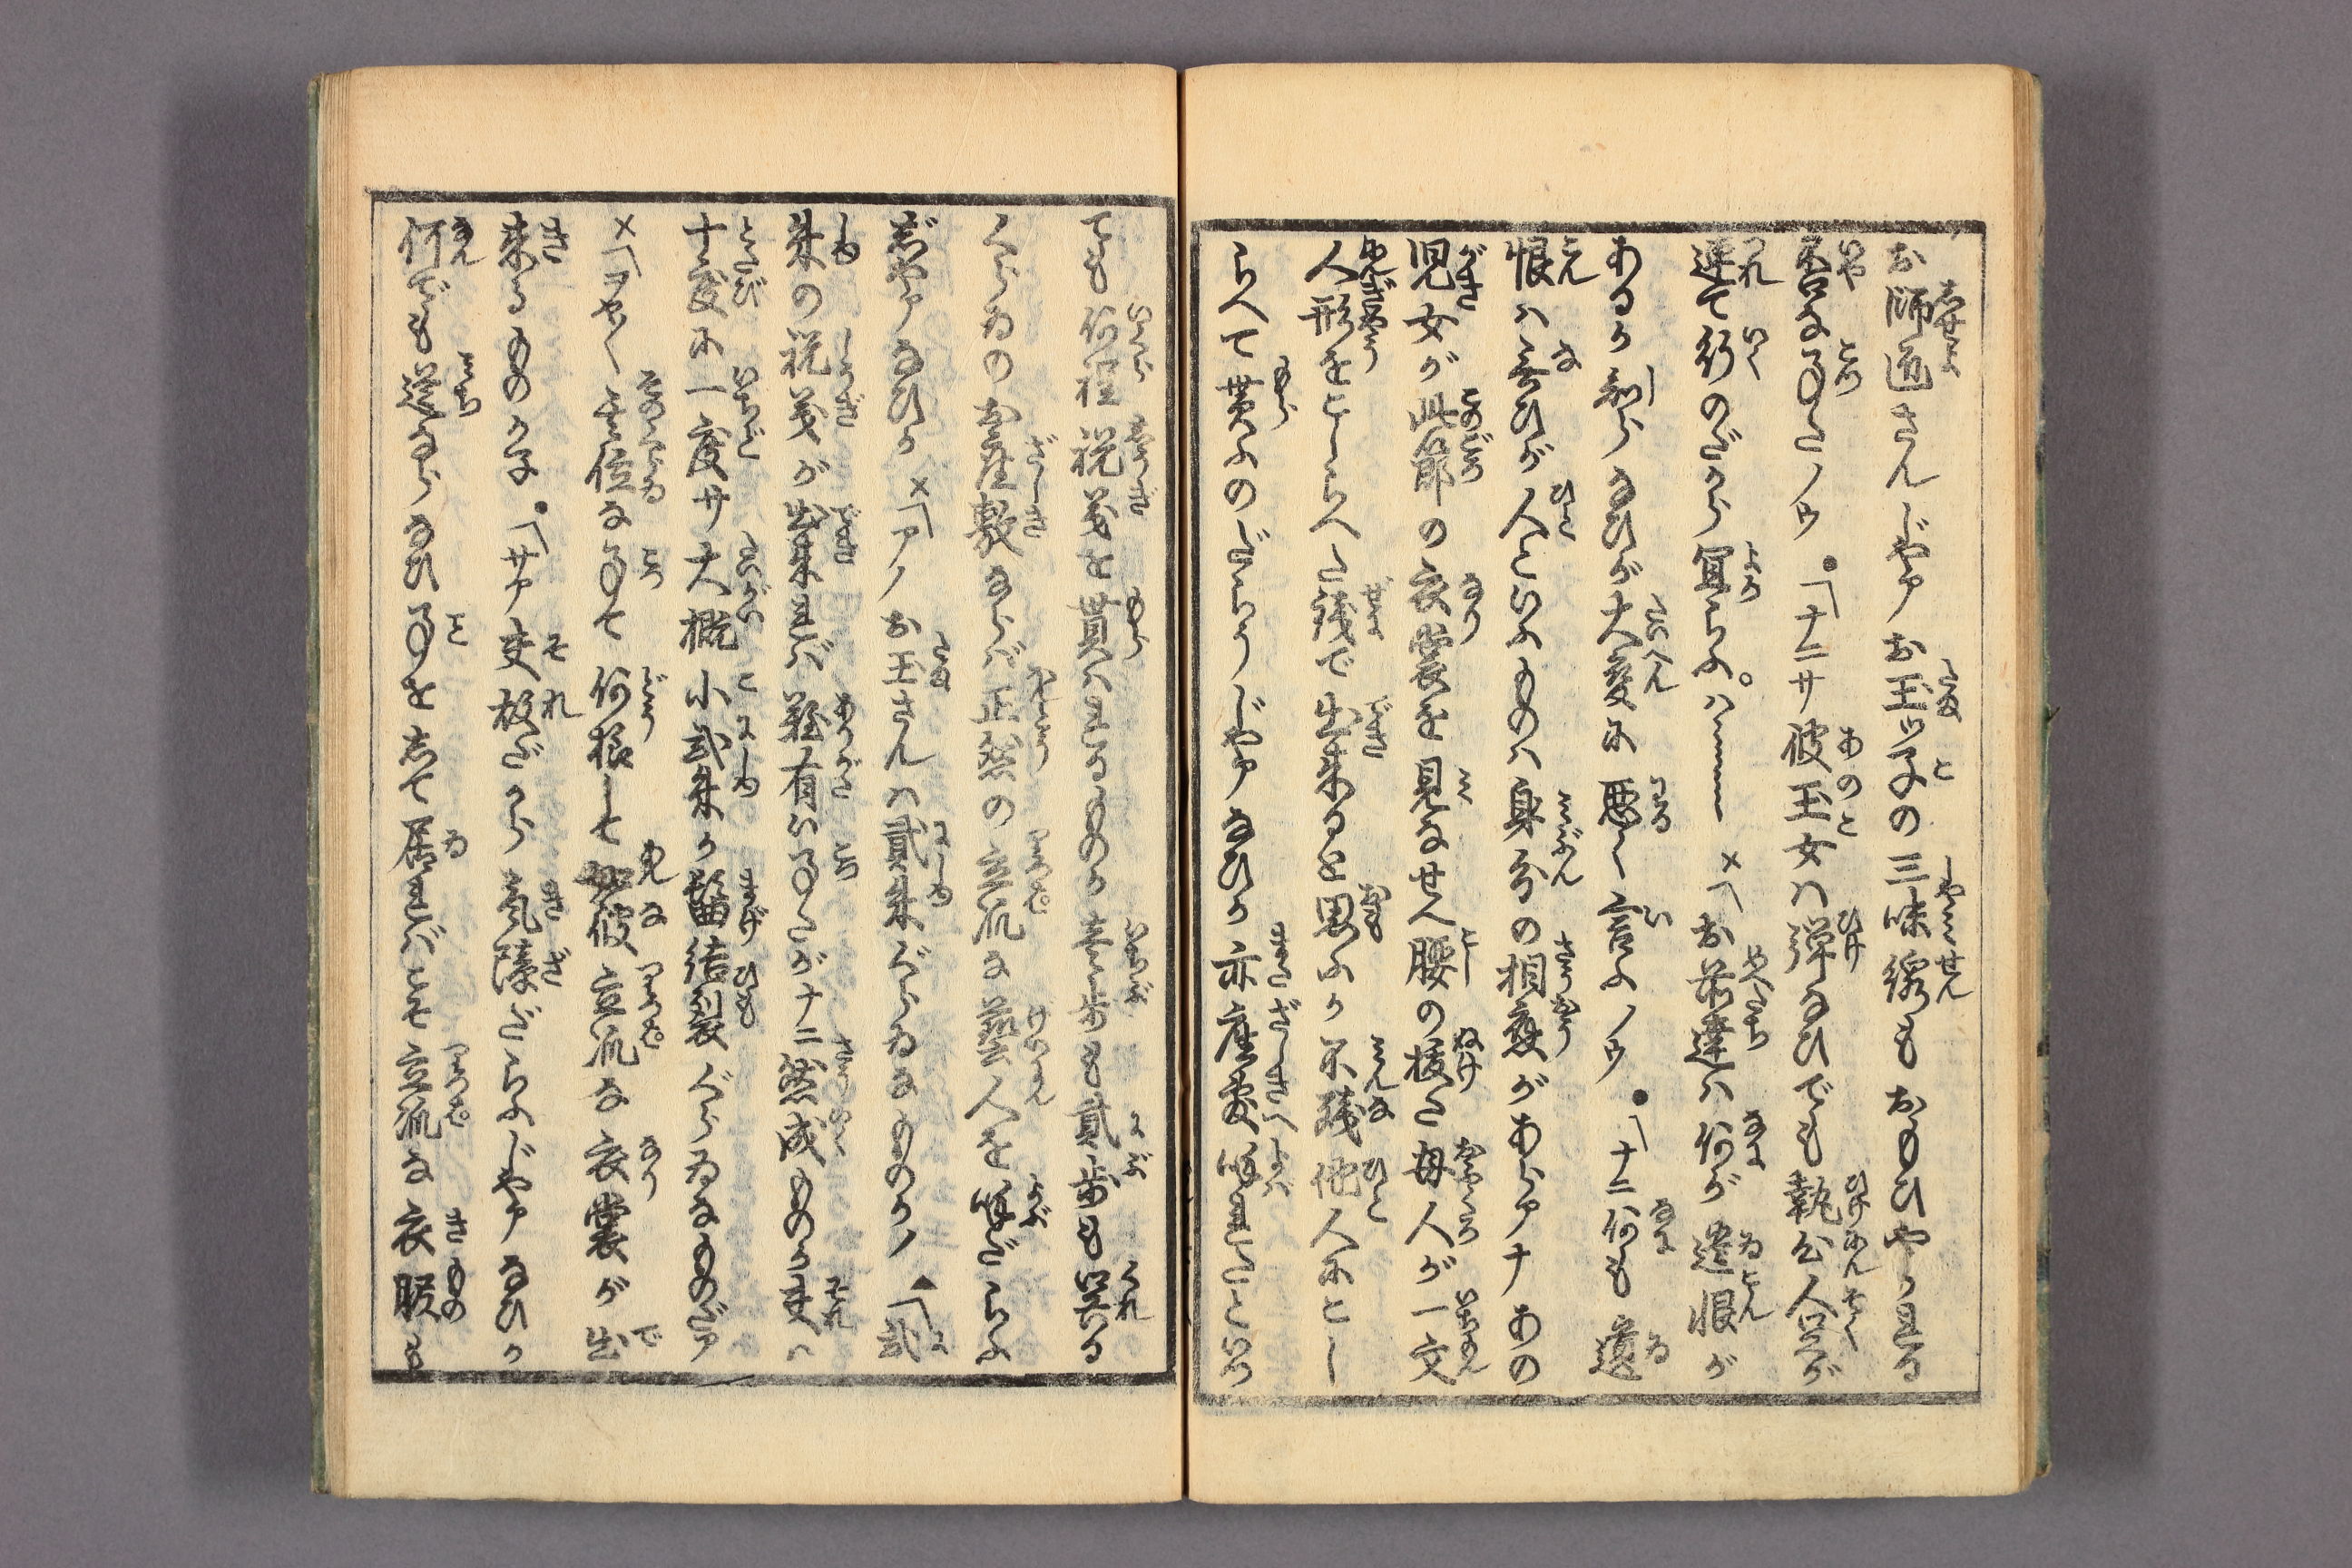 お師匠さんじやアお玉ツ子の三味線もおもひやら れる
否な事たノウ●「ナニサ彼玉女ハ弾ないでも執心人がが
連て行のだから宜らふ。ハ〻〻〻〻×「お前達ハ何が遺恨が
あるか知らないが大変に悪く言ふノウ●「ナニ何も遺
恨ハ無ひが人といふものハ身分の相應があらアナあの
児女が此節の衣裳を見なせへ腰の抜た母人が一文
人形をこしらへた銭で出来ると思ふか不残他人にこし
らへて貰ふのだらうじやアないか亦座敷へ呼れたといつ
ても何程祝義を貰ハれるものか壱歩も貳歩も呉れる
くらゐの お座敷ならバ正然の立派な藝人を呼だらふ
じやアないか×「アノお玉さんハ貳朱ぐらゐなものかノ▲「貳
朱の祝義が出来れバ難有い事たがナニ然成ものか夫ハ
十度に一度サ大概小貳朱か髷結裂ぐらゐなものだア
×「ヲヤ〳〵其位な事て何様して彼立派な衣裳が出
来るものかネ●「サア夫故だから気障だらふじやアないか
何でも道ならない事を志て居れバこそ立派な衣服も